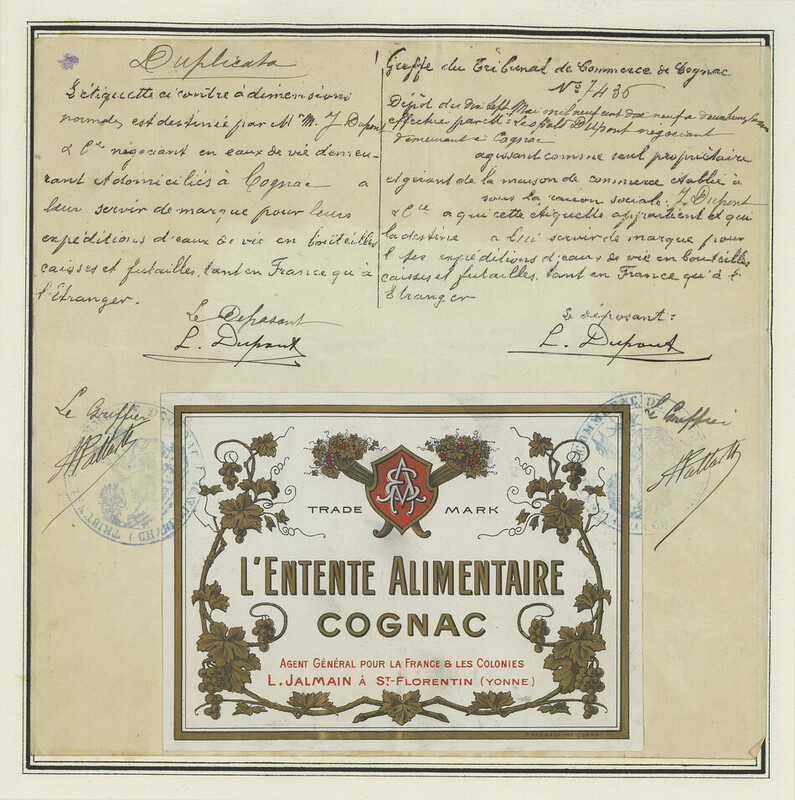 Duplicata
L'étiquette ci contre à dimensions
normales est destinée par Mr M. J Dupont
& Cie négociant en eaux de vie demeu-
rant et domiciliés à Cognac a
leur servir de marque pour leurs
expéditions d'eaux de vie en bouteilles
caisses et futailles, tant en France qu'à
l'étranger.
Le Déposant
L. Dupont
Le Greffier
Greffe du Tribunal de Commerce de Cognac
No 7436
Dépôt du dix sept Mai mil neuf cent dix neuf a
effectué par Mr Léopold Dupont négociant
demeurant à Cognac
agissant comme seul propriétaire
et gérant de la maison de commerce établie à
sous la raison sociale: J. Dupont
& Cie a qui cette étiquette appartient et qui
la destine a lui servir de marque pour
ses expéditions d'eaux de vie en bouteilles
caisses et futailles, tant en France qu'à l'
Etranger
Le déposant:
L. Dupont
Le Greffier
TRADE MARK
L'ENTENTE ALIMENTAIRE
COGNAC
AGENT GÉNÉRAL POUR LA FRANCE & LES COLONIES
L. JALMAIN À ST-FLORENTIN (YONNE)